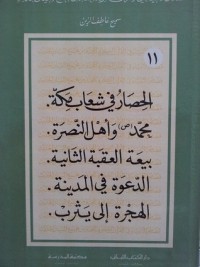 سميح عاطف الزين
١١
الحصار في شعاب مكة.
محمد (ص) وأهل النصرة.
بيعة العقبة الثانية.
الدعوة في المدينة.
الهجرة إلى يثرب.